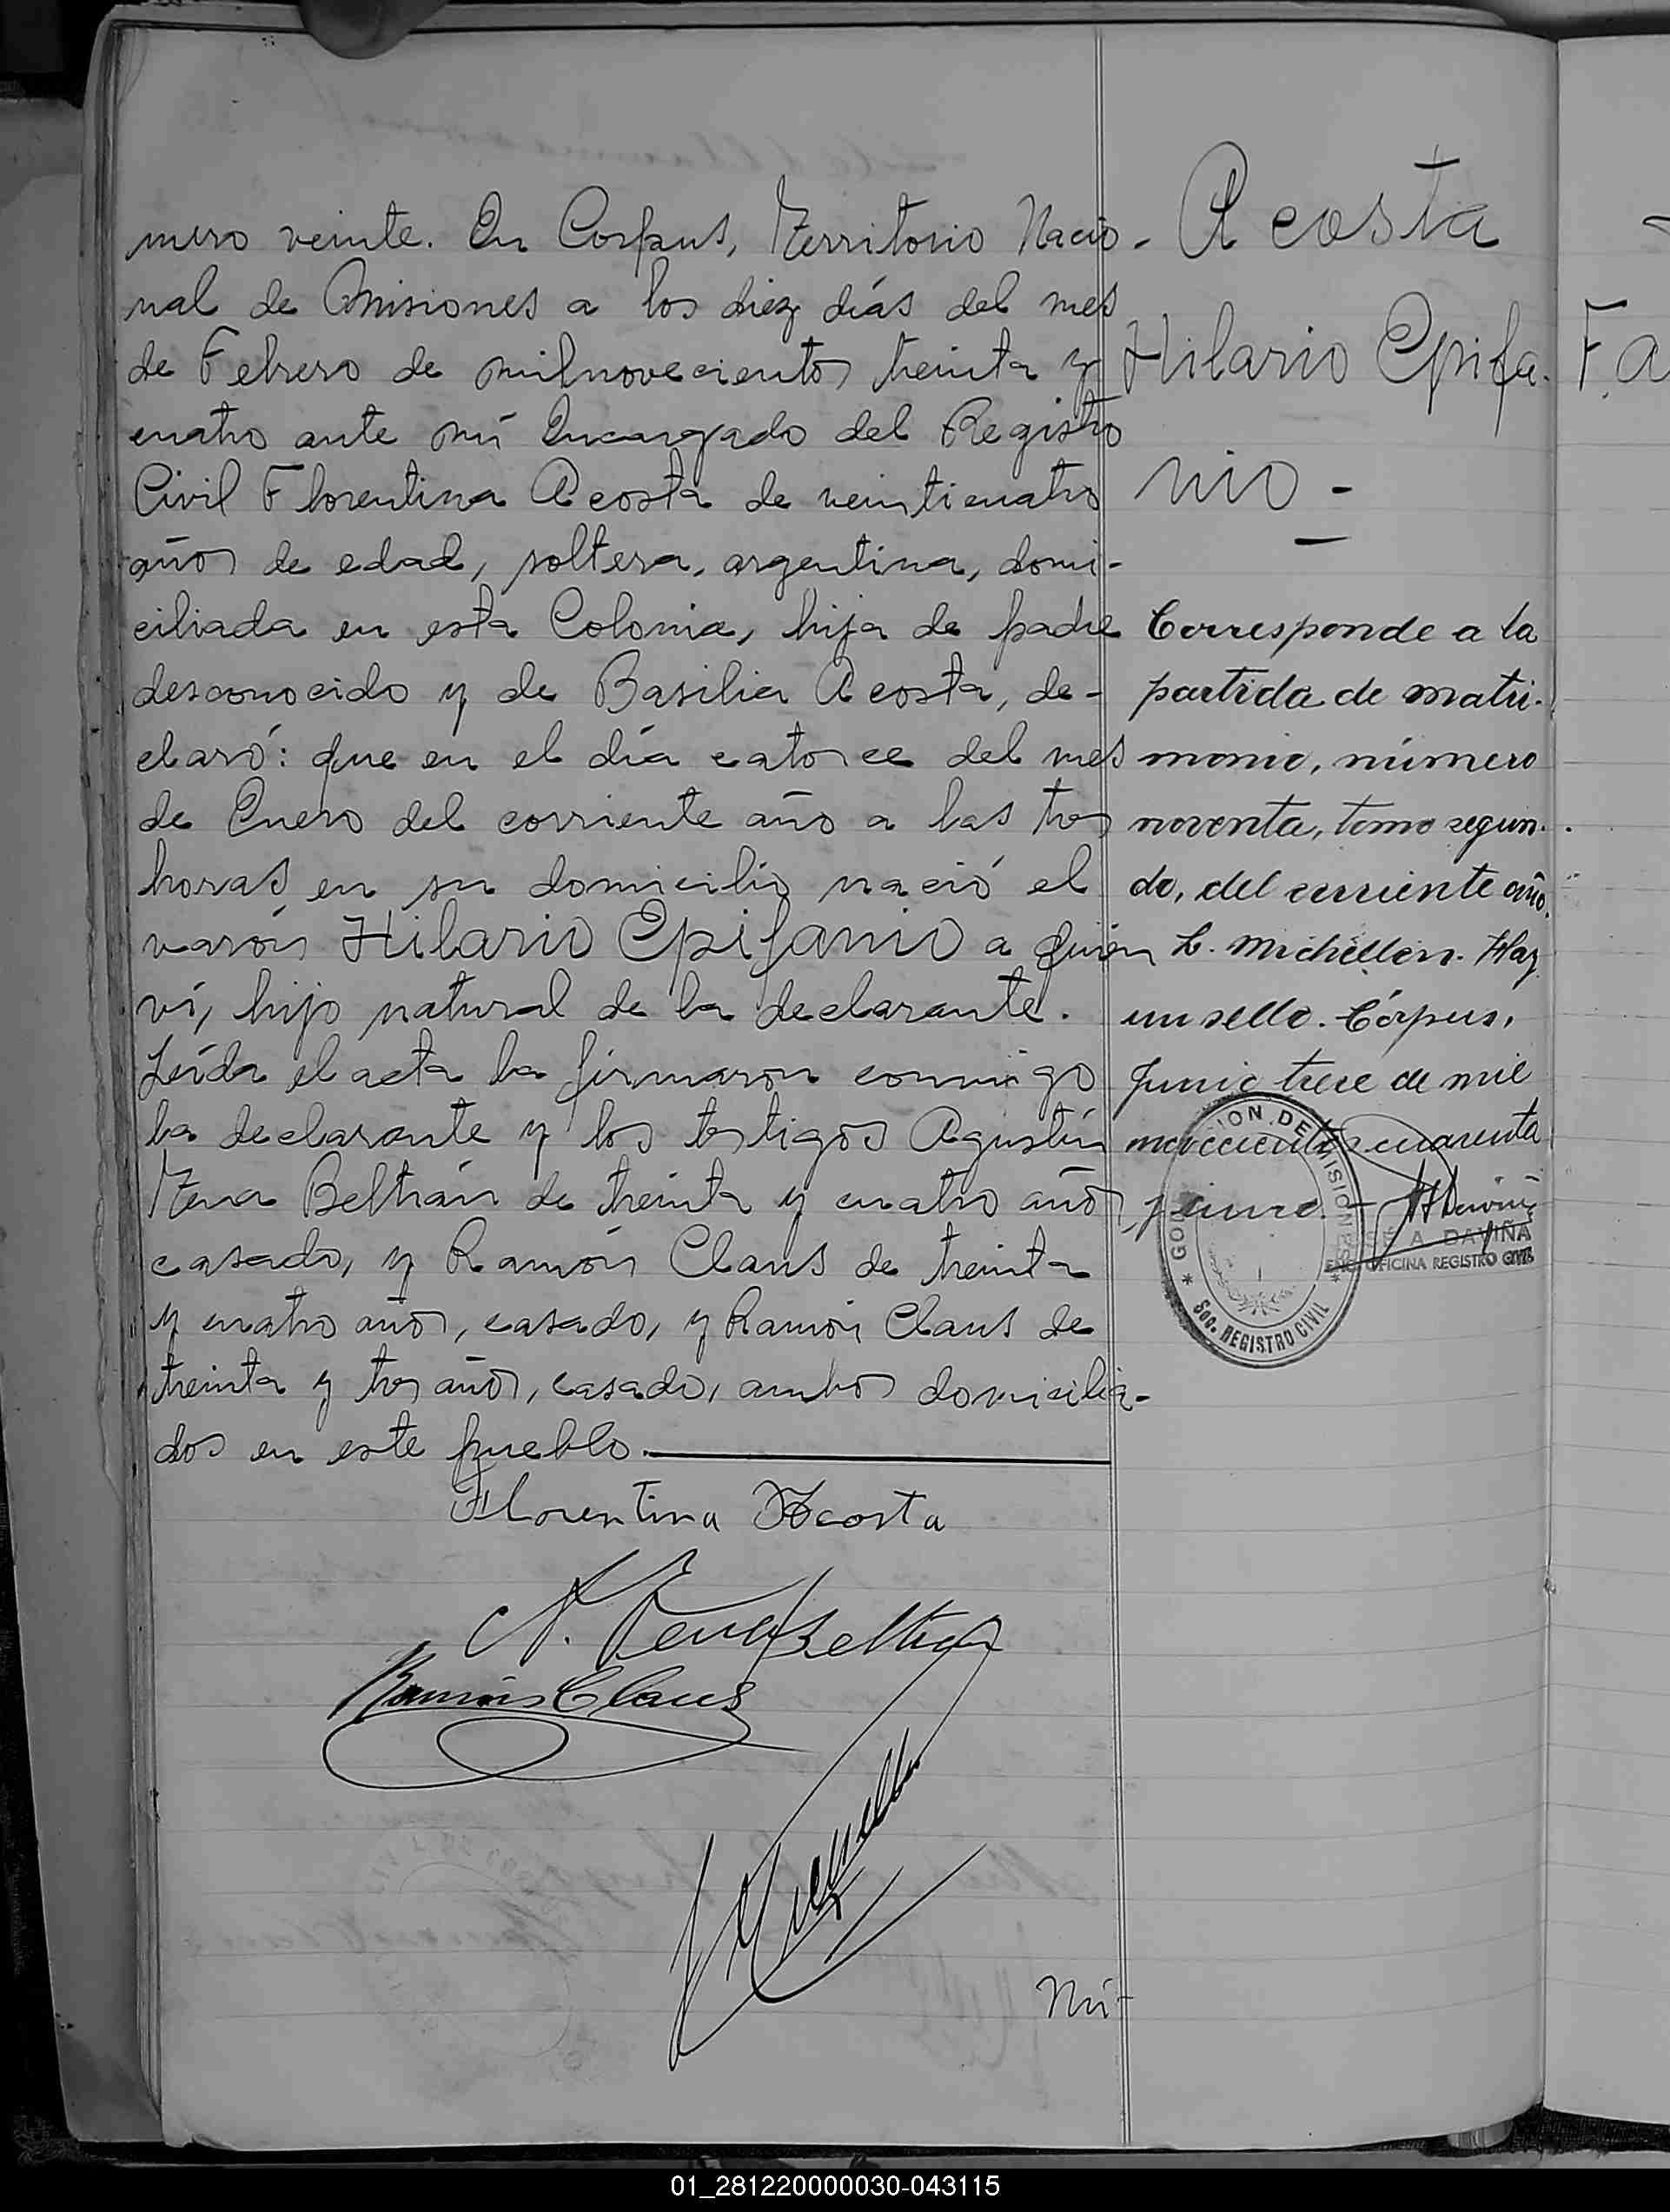 mero veinte. En Corpus, Territorio Nacio-
nal de Misiones a los diez días del mes
de Febrero de milnovecientos treinta y
cuatro ante mí Encargado del Registro
Civil Florentina Acosta de veinticuatro
años de edad, soltera, argentina, domi-
ciliada en esta Colonia, hija de padre
desconocido y de Basilia Acosta, de-
claró: que en el día catorce del mes
de Enero del corriente año a las tres
horas, en su domicilio nació el
varón Hilario Epifanio a quien
ví, hijo natural de la declarante.
Leída el acta la firmaron conmigo
la declarante y los testigos Agustín
Tena Beltrán de treinta y cuatro años
casado, y Ramón Claus de treinta
y cuatro años, casado, y Ramón Claus de
treinta y tres años, casado, ambos domicilia-
dos en este pueblo.
Florentina Acosta
A. Tena Beltran
Ramón Claus
Nú-
Acosta
Hilario Epifa-
nio-
Corresponde a la
partida de matri-
monio, número
noventa, tomo segun-
do, del corriente año.
L. Michellon. Hay
un sello. Córpus,
Junio trece de mil
novecientos cuarenta
y cinco.-
SE A. DAVIÑA
ENC. OFICINA REGISTRO CIVIL
GO ION DE MISIONES
SOC. REGISTRO CIVIL
F. A
01_281220000030-043115